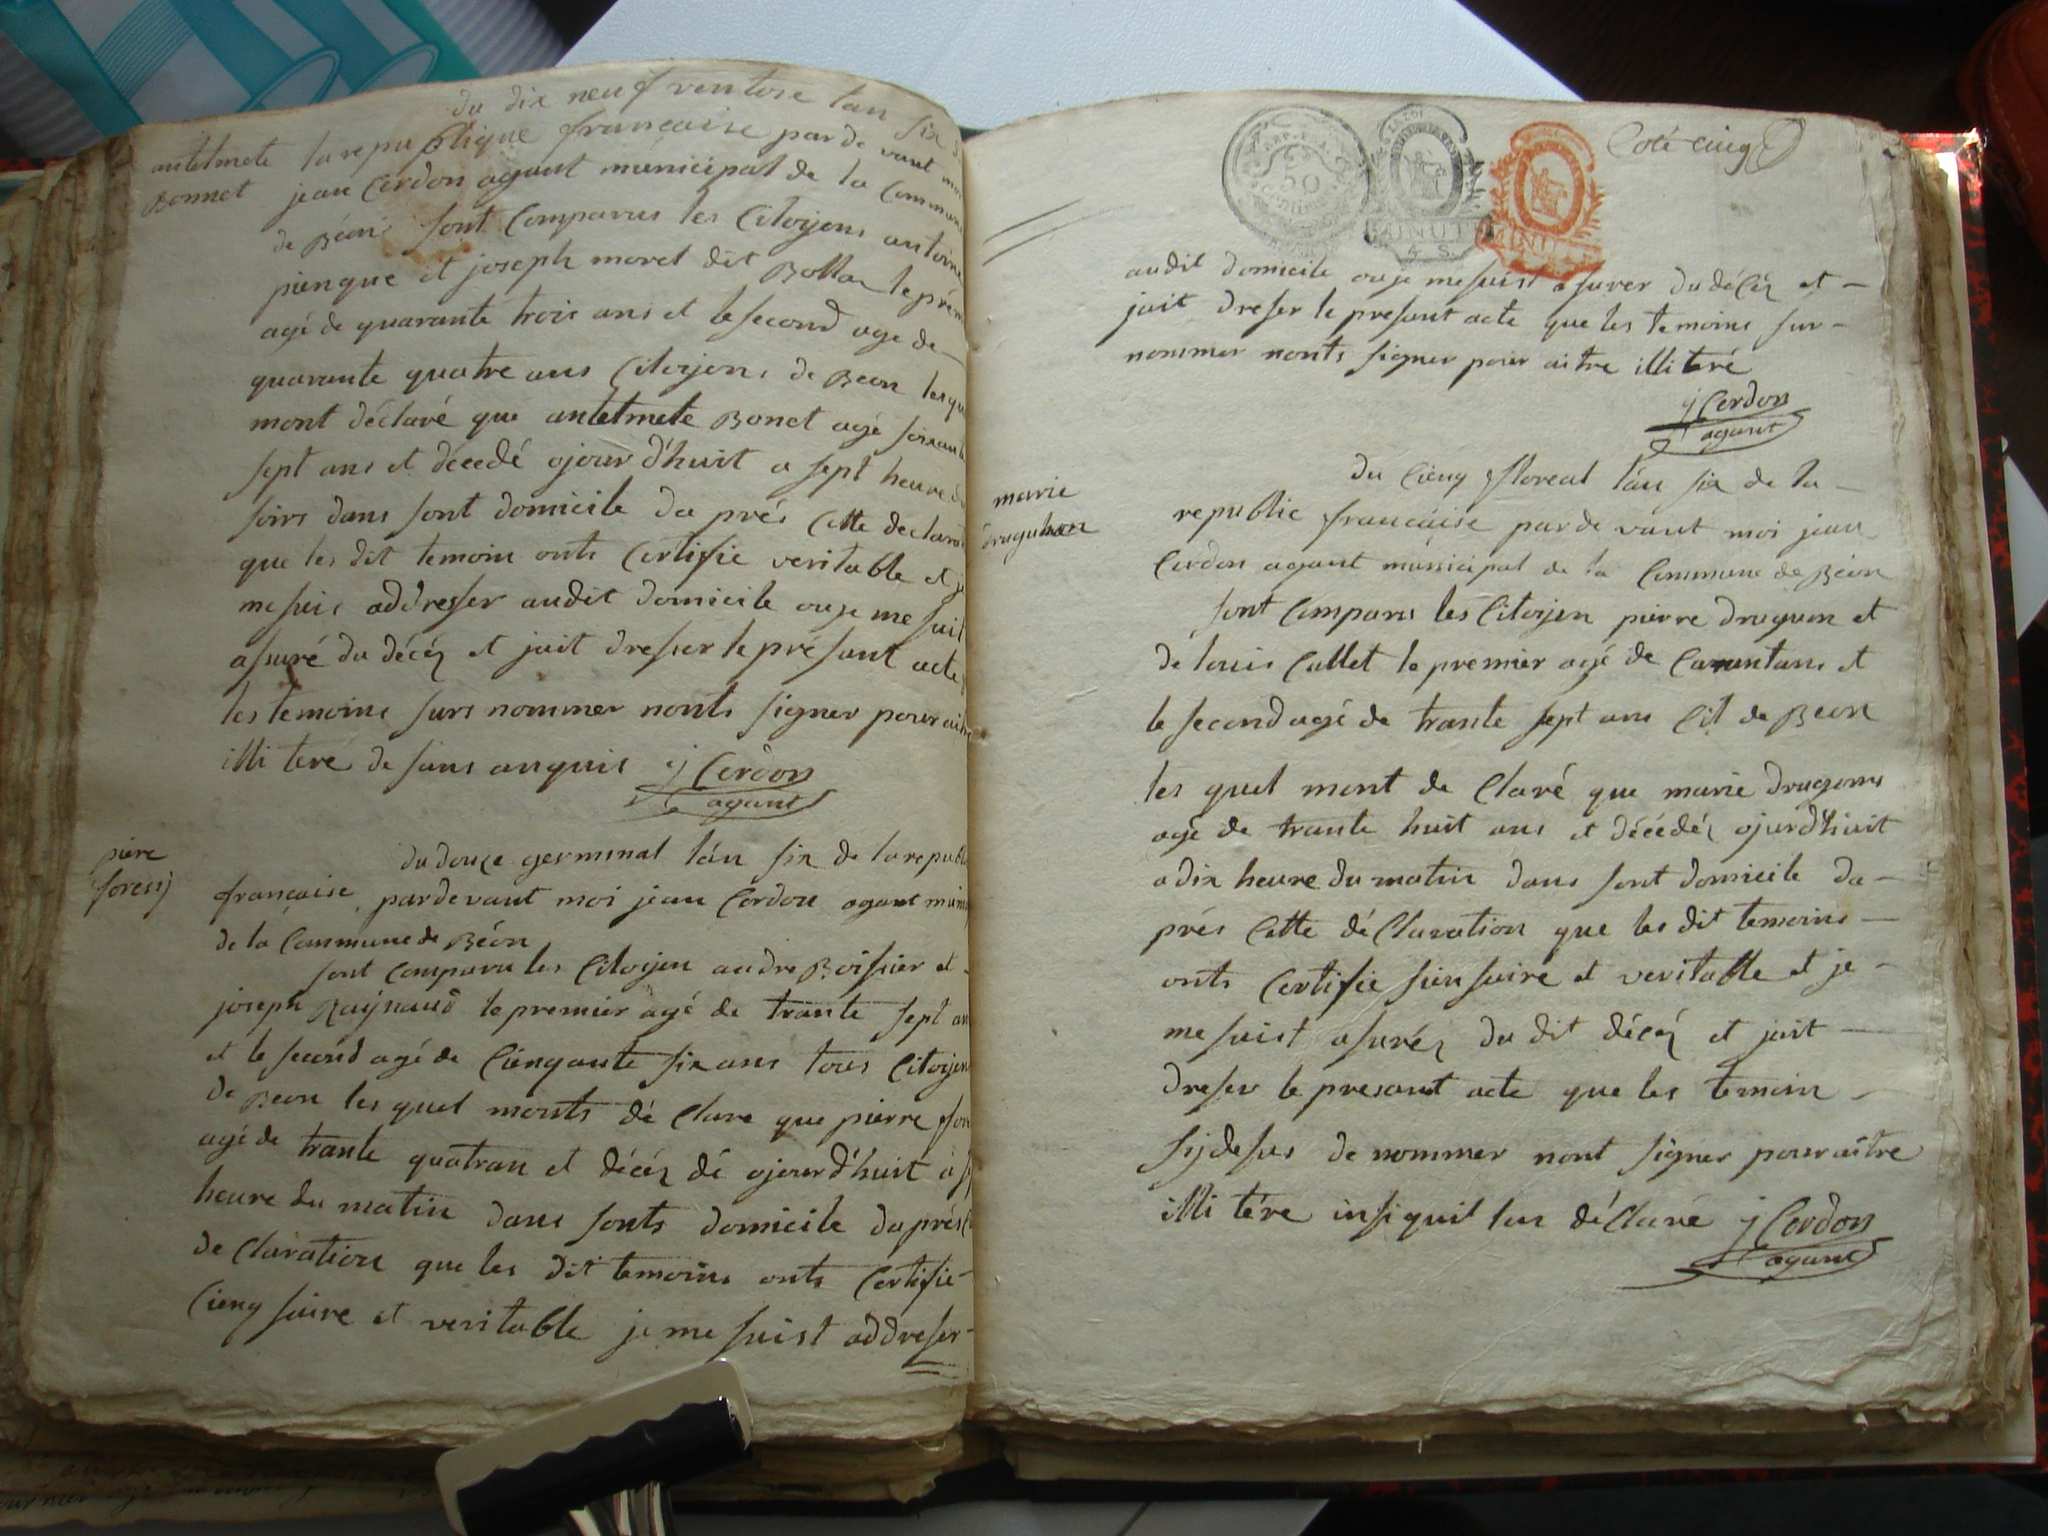 du dix neuf ventose lan six
antelmete
Bonnet
la republique française par de vant moi
jean Cerdon agant municipal de la Commun
de Béon sont Comparus les Citoyens antoine
piengue et joseph morel dit Bolla le prem
agé de quarante trois ans et le second age de
quarante quatre ans Citoyens de Beon lesqu
mont déclaré que antelmete Bonet agé soixante
sept ans et décedé ojourd'huit a sept heure du
soirs dans sont domicile da prés Cette declarat
que les dit temoin onts Certifie veritable et je
me suis addresser audit domicile ou je me suit
asuré du décéz et jait dresser le présant acte
les temoins surs nommer nonts signer pour aitre
illi teré de sans anquis j Cerdon
agant
piere
foresy
du douze germinal l'an six de la republi
française pardevant moi jean Cerdon agant munici
de la Commune de Béon
sont Comparu les Citoyen andre Boissier et
joseph Raynaud le premier agé de trante sept an
et le second agé de Cienquante six ans tous Citoyen
de Beon les quel monts dé Clare que pierre for
agé de trante quatran et décéz dé ojourd'huit à s
heure du matin dans sonts domicile da prés C
de Claration que les dit temoins onts Certifie
Cienq saire et veritable je me suist addreser
Coté cinq
50
MINUTE
MINUTE
audit domicile ou je me suist asurer du décéz et —
jait dreser le presant acte que les temoins sur —
nommer nonts signer pour aitre illi teré
j Cerdon
agant
marie
druguhon
du Cienq floreal l'an six de la —
republic française par de vant moi jean
Cerdon agant municipal de la Commune de Béon
sont Comparu les Citoyen pierre druguon et
de louis Callet le premier agé de Carantans et
le second agé de trante sept ans Cit de Beon
les quel mont de Claré que marie drugons
agé de trante huit ans et décédéz ojurd'huit
a dix heure du matin dans sont domicile da —
prés Cette dé Claration que les dit temoins —
onts Certifie sien saire et veritable et je —
me suist asuréz du dit décéz et jait —
dreser le presant acte que les temoin —
sydesus de nommer nont signer pour aitre
illi tére insi quil lon dé Claré j Cerdon
agant